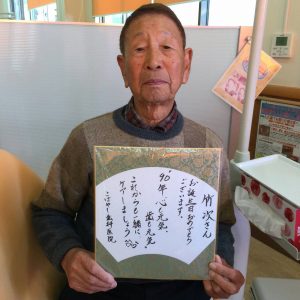 竹次さん
お誕生日おめでとう
ございます。
"90年、心も元気、
歯も元気"
これからも一緒に
ケアしましょう
こばやし歯科医院